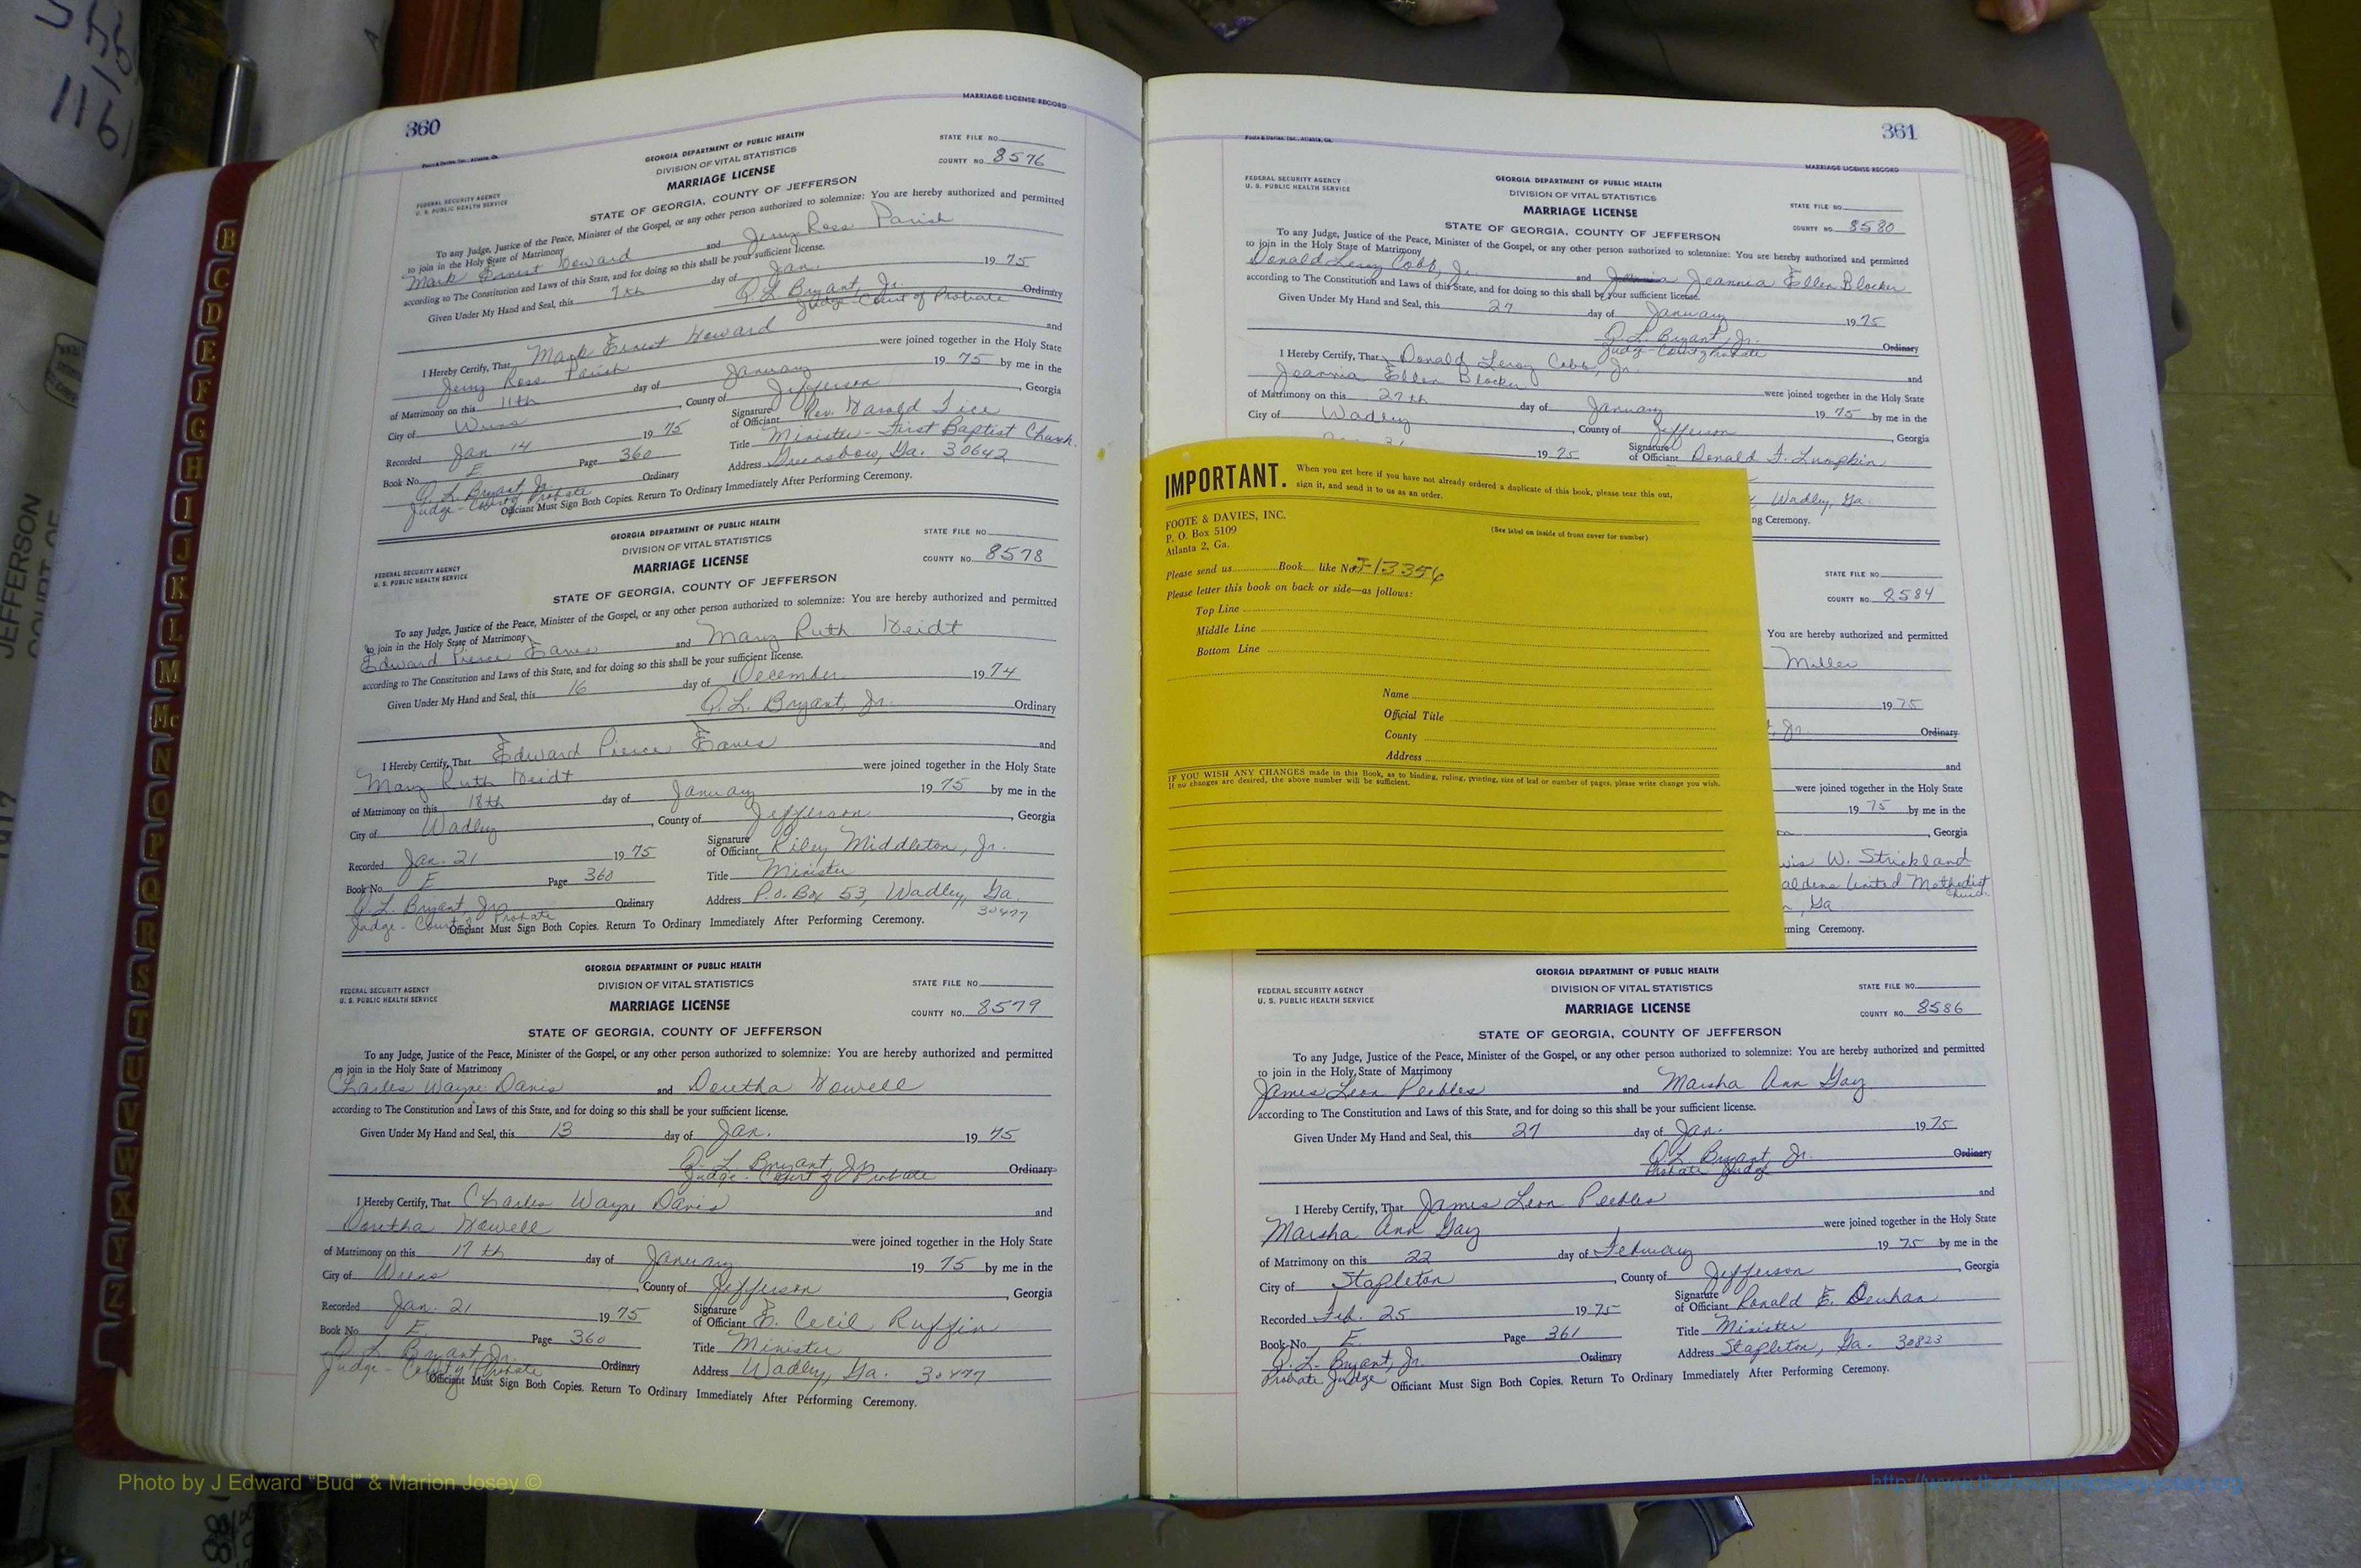 360
MARRIAGE LICENSE RECORD
Foote & Davies, Inc., Atlanta, Ga.
GEORGIA DEPARTMENT OF PUBLIC HEALTH
DIVISION OF VITAL STATISTICS
MARRIAGE LICENSE
STATE FILE NO.
COUNTY NO. 8576
FEDERAL SECURITY AGENCY
U. S. PUBLIC HEALTH SERVICE
STATE OF GEORGIA, COUNTY OF JEFFERSON
To any Judge, Justice of the Peace, Minister of the Gospel, or any other person authorized to solemnize: You are hereby authorized and permitted
to join in the Holy State of Matrimony
Mark Ernest Howard and Jerry Ross Parish
according to The Constitution and Laws of this State, and for doing so this shall be your sufficient license.
Given Under My Hand and Seal, this 7th day of Jan. 1975
Q L Bryant, Jr. Ordinary
Judge-Court of Probate
I Hereby Certify, That Mark Ernest Howard and
Jerry Ross Parish were joined together in the Holy State
of Matrimony on this 11th day of January 1975 by me in the
City of Wrens, County of Jefferson, Georgia
Recorded Jan 14 1975 Signature of Officiant Rev. Harold Tice
Book No. E Page 360 Title Minister - First Baptist Church
Q. L. Bryant Jr. Ordinary Address Greensboro, Ga. 30642
Judge-Court of Probate
Officiant Must Sign Both Copies. Return To Ordinary Immediately After Performing Ceremony.
GEORGIA DEPARTMENT OF PUBLIC HEALTH
DIVISION OF VITAL STATISTICS
MARRIAGE LICENSE
STATE FILE NO.
COUNTY NO. 8578
FEDERAL SECURITY AGENCY
U. S. PUBLIC HEALTH SERVICE
STATE OF GEORGIA, COUNTY OF JEFFERSON
To any Judge, Justice of the Peace, Minister of the Gospel, or any other person authorized to solemnize: You are hereby authorized and permitted
to join in the Holy State of Matrimony
Edward Pierce Eaves and Mary Ruth Heidt
according to The Constitution and Laws of this State, and for doing so this shall be your sufficient license.
Given Under My Hand and Seal, this 16 day of December 1974
Q. L. Bryant, Jr. Ordinary
I Hereby Certify, That Edward Pierce Eaves and
Mary Ruth Heidt were joined together in the Holy State
of Matrimony on this 18th day of January 1975 by me in the
City of Wadley, County of Jefferson, Georgia
Recorded Jan. 21 1975 Signature of Officiant Riley Middleton, Jr.
Book No. E Page 360 Title Minister
Q L Bryant Jr. Ordinary Address P.O. Box 53, Wadley, Ga. 30477
Judge - Court of Probate
Officiant Must Sign Both Copies. Return To Ordinary Immediately After Performing Ceremony.
GEORGIA DEPARTMENT OF PUBLIC HEALTH
DIVISION OF VITAL STATISTICS
MARRIAGE LICENSE
STATE FILE NO.
COUNTY NO. 8579
FEDERAL SECURITY AGENCY
U. S. PUBLIC HEALTH SERVICE
STATE OF GEORGIA, COUNTY OF JEFFERSON
To any Judge, Justice of the Peace, Minister of the Gospel, or any other person authorized to solemnize: You are hereby authorized and permitted
to join in the Holy State of Matrimony
Charles Wayne Davis and Doretha Howell
according to The Constitution and Laws of this State, and for doing so this shall be your sufficient license.
Given Under My Hand and Seal, this 13 day of Jan. 1975
Q. L. Bryant Jr. Ordinary
Judge - Court of Probate
I Hereby Certify, That Charles Wayne Davis and
Doretha Howell were joined together in the Holy State
of Matrimony on this 17th day of January 1975 by me in the
City of Wrens, County of Jefferson, Georgia
Recorded Jan. 21 1975 Signature of Officiant E. Cecil Ruffin
Book No. E Page 360 Title Minister
Q L Bryant Jr. Ordinary Address Wadley, Ga. 30477
Judge - County Probate
Officiant Must Sign Both Copies. Return To Ordinary Immediately After Performing Ceremony.
361
Foote & Davies, Inc., Atlanta, Ga.
MARRIAGE LICENSE RECORD
FEDERAL SECURITY AGENCY
U. S. PUBLIC HEALTH SERVICE
GEORGIA DEPARTMENT OF PUBLIC HEALTH
DIVISION OF VITAL STATISTICS
MARRIAGE LICENSE
STATE FILE NO.
COUNTY NO. 8580
STATE OF GEORGIA, COUNTY OF JEFFERSON
To any Judge, Justice of the Peace, Minister of the Gospel, or any other person authorized to solemnize: You are hereby authorized and permitted
to join in the Holy State of Matrimony
Donald Leroy Cobb, Jr. and Jeannia Ellen Blocker
according to The Constitution and Laws of this State, and for doing so this shall be your sufficient license.
Given Under My Hand and Seal, this 27 day of January 1975
Q. L. Bryant, Jr. Ordinary
Judge-County Probate
I Hereby Certify, That Donald Leroy Cobb, Jr. and
Jeannia Ellen Blocker were joined together in the Holy State
of Matrimony on this 27th day of January 1975 by me in the
City of Wadley, County of Jefferson, Georgia
1975 Signature of Officiant Donald F. Lumpkin
Wadley, Ga.
ng Ceremony.
IMPORTANT.
When you get here if you have not already ordered a duplicate of this book, please tear this out,
sign it, and send it to us as an order.
FOOTE & DAVIES, INC.
P. O. Box 5109
Atlanta 2, Ga.
(See label on inside of front cover for number)
Please send us Book like No. J-13356
Please letter this book on back or side—as follows:
Top Line
Middle Line
Bottom Line
Name
Official Title
County
Address
IF YOU WISH ANY CHANGES made in this Book, as to binding, ruling, printing, size of leaf or number of pages, please write change you wish.
If no changes are desired, the above number will be sufficient.
STATE FILE NO.
COUNTY NO. 8584
You are hereby authorized and permitted
Miller
1975
, Jr. Ordinary
and
were joined together in the Holy State
1975 by me in the
, Georgia
vis W. Strickland
aldens United Methodist Church
, Ga
rming Ceremony.
GEORGIA DEPARTMENT OF PUBLIC HEALTH
DIVISION OF VITAL STATISTICS
MARRIAGE LICENSE
STATE FILE NO.
COUNTY NO. 8586
FEDERAL SECURITY AGENCY
U. S. PUBLIC HEALTH SERVICE
STATE OF GEORGIA, COUNTY OF JEFFERSON
To any Judge, Justice of the Peace, Minister of the Gospel, or any other person authorized to solemnize: You are hereby authorized and permitted
to join in the Holy State of Matrimony
James Leon Peebles and Marsha Ann Gay
according to The Constitution and Laws of this State, and for doing so this shall be your sufficient license.
Given Under My Hand and Seal, this 27 day of Jan. 1975
Q. L. Bryant, Jr. Ordinary
Probate Judge
I Hereby Certify, That James Leon Peebles and
Marsha Ann Gay were joined together in the Holy State
of Matrimony on this 22 day of February 1975 by me in the
City of Stapleton, County of Jefferson, Georgia
Recorded Feb. 25 1975 Signature of Officiant Ronald E. Denhan
Book No. E Page 361 Title Minister
Q. L. Bryant, Jr. Ordinary Address Stapleton, Ga. 30823
Probate Judge
Officiant Must Sign Both Copies. Return To Ordinary Immediately After Performing Ceremony.
B
C
D
E
F
G
H
I
J
K
L
M
Mc
N
O
P
Q
R
S
T
U
V
W
X
Y
Z
JEFFERSON
COURT OF
Photo by J Edward "Bud" & Marion Josey ©